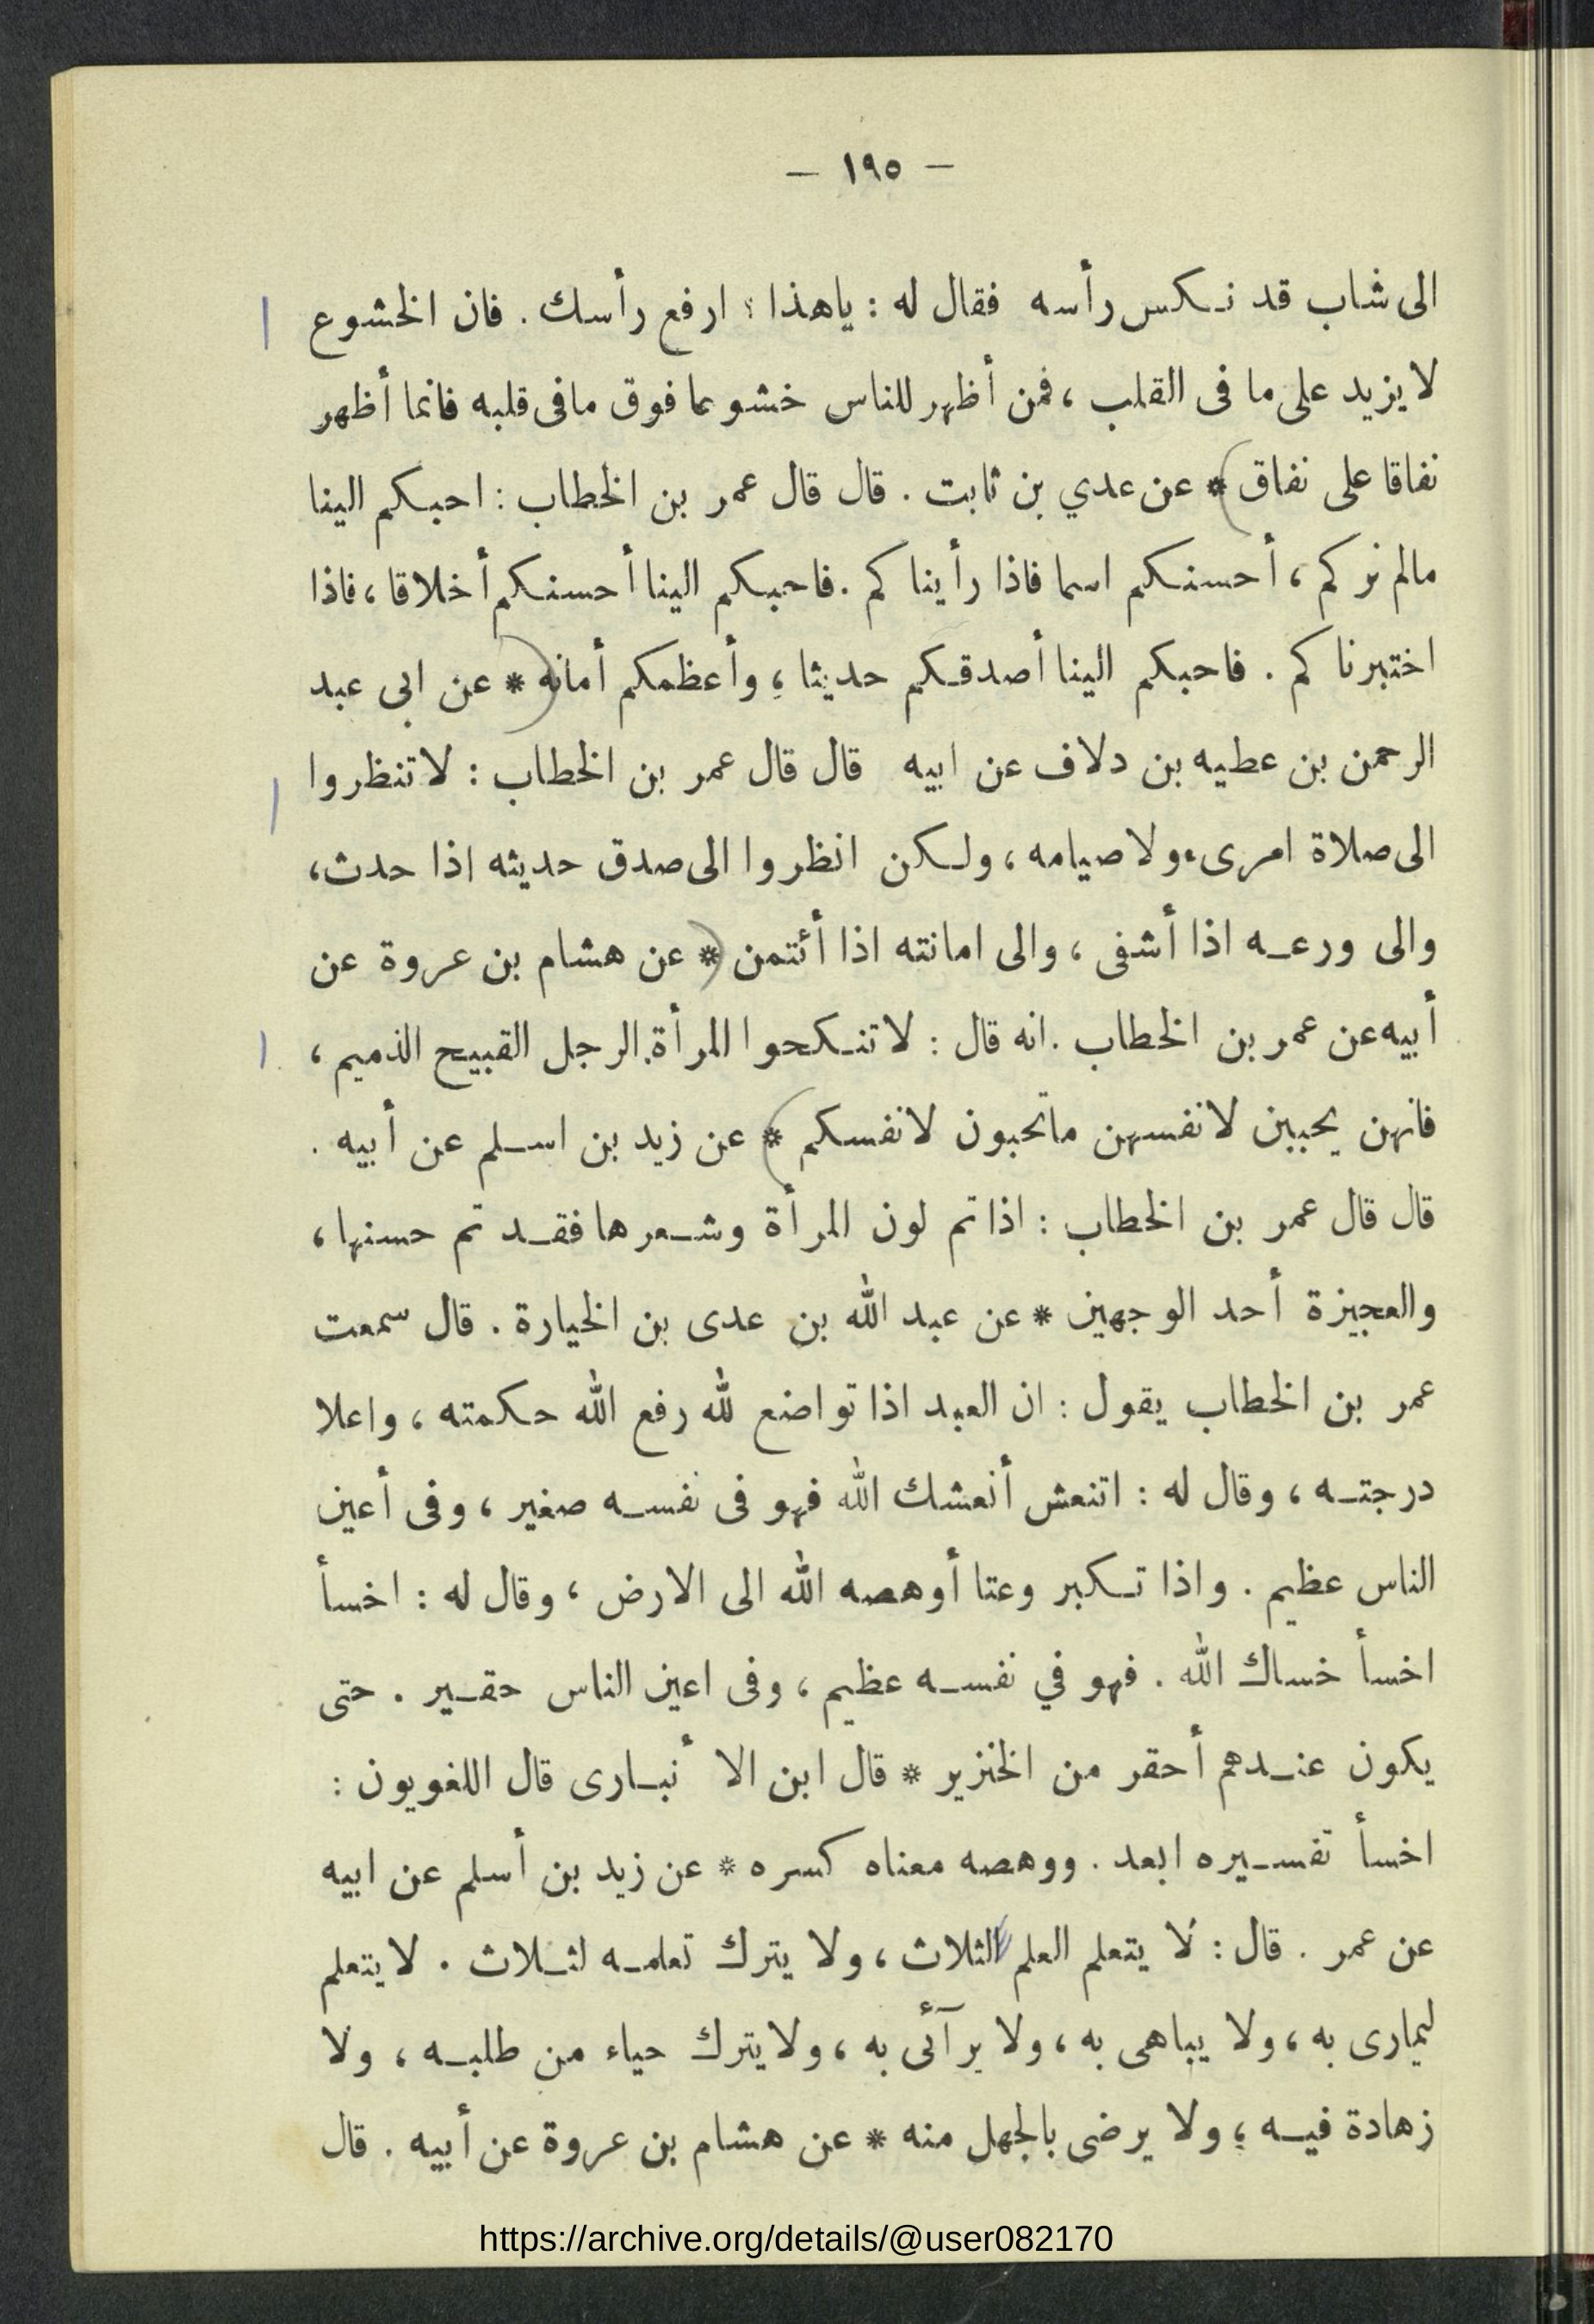 — ١٩٥ —
الى شاب قد نكس رأسه فقال له : ياهذا ؛ ارفع رأسك . فان الخشوع
لا يزيد على ما فى القلب ، فمن أظهر للناس خشوعا فوق مافى قلبه فانما أظهر
نفاقا على نفاق * عن عدي بن ثابت . قال قال عمر بن الخطاب : احبكم الينا
مالم نركم ، أحسنكم اسما فاذا رأيناكم . فاحبكم الينا أحسنكم أخلاقا ، فاذا
اختبرناكم . فاحبكم الينا أصدقكم حديثا ، وأعظمكم أمانه * عن ابى عبد
الرحمن بن عطيه بن دلاف عن ابيه قال قال عمر بن الخطاب : لاتنظروا
الى صلاة امرىء ولا صيامه ، ولكن انظروا الى صدق حديثه اذا حدث ،
والى ورعه اذا أشفى ، والى امانته اذا أئتمن * عن هشام بن عروة عن
أبيه عن عمر بن الخطاب . انه قال : لاتنكحوا المرأة الرجل القبيح الذميم ،
فانهن يحببن لانفسهن ماتحبون لانفسكم * عن زيد بن اسلم عن أبيه .
قال قال عمر بن الخطاب : اذا تم لون المرأة وشعرها فقد تم حسنها ،
والعجيزة أحد الوجهين * عن عبد الله بن عدى بن الخيارة . قال سمعت
عمر بن الخطاب يقول : ان العبد اذا تواضع لله رفع الله حكمته ، واعلا
درجته ، وقال له : اتنعش أنعشك الله فهو فى نفسه صغير ، وفى أعين
الناس عظيم . واذا تكبر وعتا أوهصه الله الى الارض ، وقال له : اخسأ
اخسأ خساك الله . فهو في نفسه عظيم ، وفى اعين الناس حقير . حتى
يكون عندهم أحقر من الخنزير * قال ابن الأنبارى قال اللغويون :
اخسأ تفسيره ابعد . ووهصه معناه كسره * عن زيد بن أسلم عن ابيه
عن عمر . قال : لا يتعلم العلم لثلاث ، ولا يترك تعلمه لثلاث . لايتعلم
ليمارى به ، ولا يباهى به ، ولا يرآئى به ، ولايترك حياء من طلبه ، ولا
زهادة فيه ، ولا يرضى بالجهل منه * عن هشام بن عروة عن أبيه . قال
https://archive.org/details/@user082170